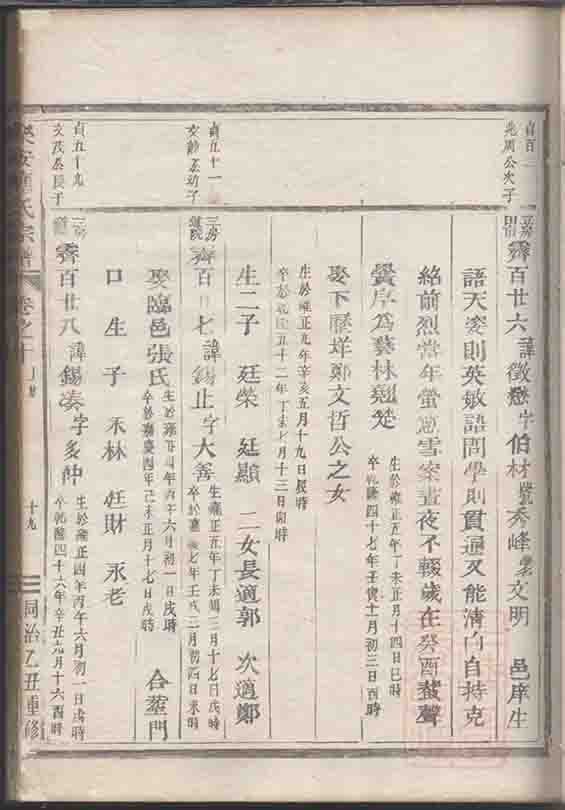 貞百一
兆周公次子
霽百廿六諱徵懋字伯材號秀峰 文明 邑庠生
語天姿則英敏語問學則貫通又能清白自持克
紹前烈當年螢窓雪案晝夜不輟歲在癸酉蜚聲
黌序為藝林翹楚
生於雍正五年丁未正月十四日巳時
卒於乾隆四十七年壬寅十一月初三日酉時
娶下歷垟鄭文哲公之女
生於雍正九年辛亥五月十九日辰時
卒於乾隆五十二年丁未七月十三日卯時
生二子 廷榮 廷顯 二女長適郭 次適鄭
貞五十一
文齡公幼子
三房
霽百 七諱錫止字大善
生雍正五年丁未 三月十七日戌時
卒於嘉慶七年壬戌二月初四日未時
娶臨邑張氏
生於雍正四年丙午六月初一日戌時
卒於嘉慶四年己未正月十七日戌時
合塟門
口 生 子 禾林 廷財 永老
貞五十九
文茂公長子
霽百廿八諱錫湊字多仲
生於雍正四年丙午六月初一日戌時
卒乾隆四十六年辛丑九月十六酉時
樂安 氏宗譜 卷之十 十九 同治乙丑重修